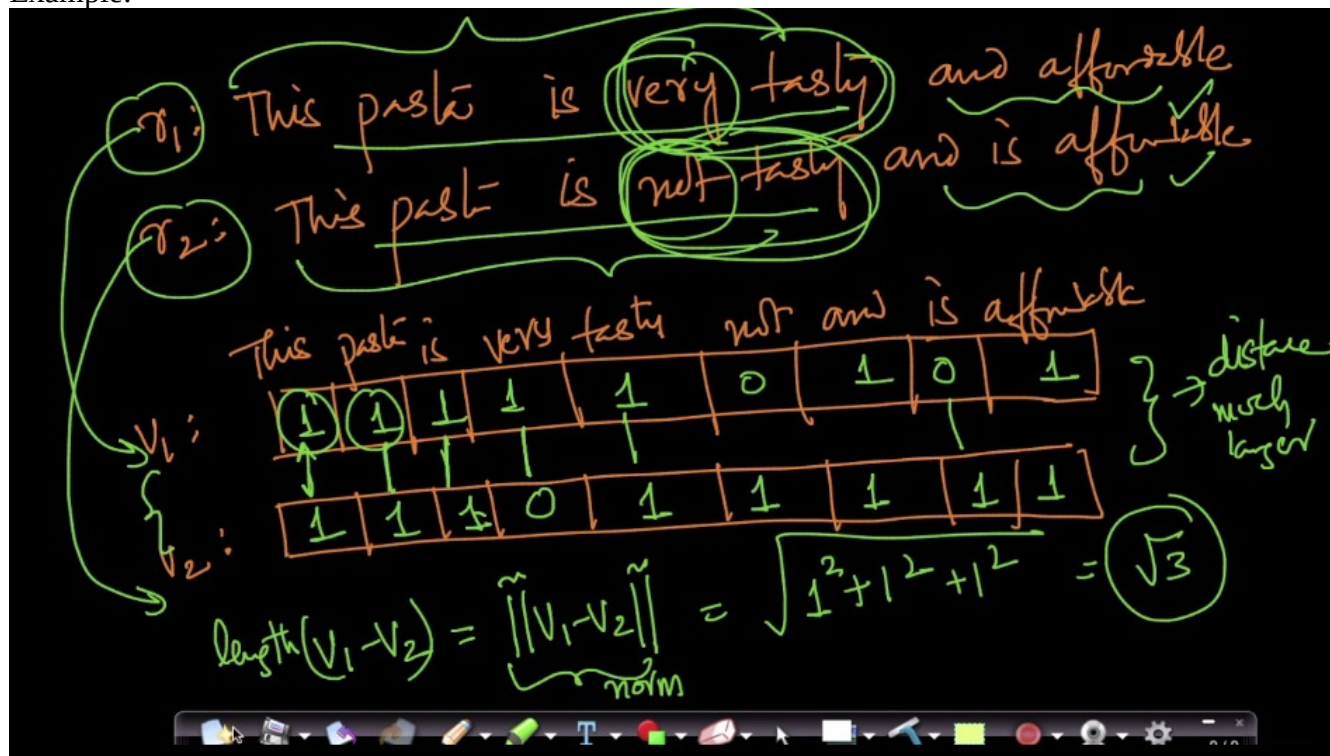 Example:
r1: This pasta is very tasty and affordable
r2: This pasta is not tasty and is affordable
This pasta is very tasty not and is affordable
V1: 1 1 1 1 1 0 1 0 1 } → distance much larger
V2: 1 1 1 0 1 1 1 1 1
length(V1-V2) = ||V1-V2|| = √1²+1²+1² = √3
norm